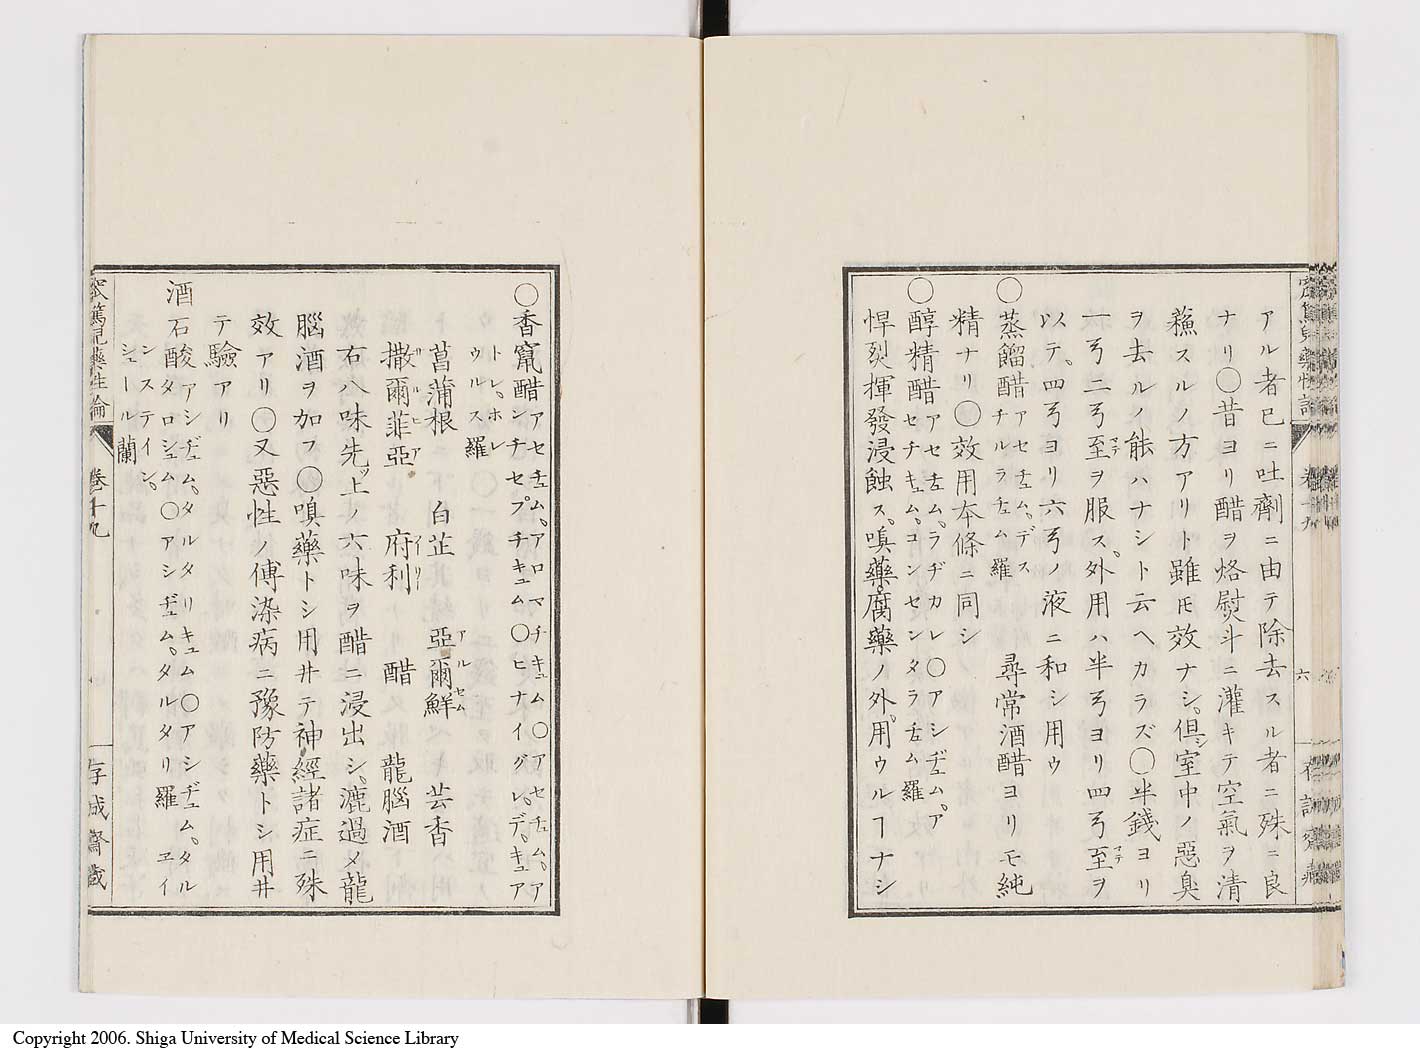 アル者已ニ吐劑ニ由テ除去スル者ニ殊ニ良
ナリ〇昔ヨリ醋ヲ烙熨斗ニ灌キテ空氣ヲ清
蘓スルノ方アリト雖𪜈效ナシ。但シ室中ノ惡臭
ヲ去ルノ能ハナシト云ヘカラズ〇半錢ヨリ
一弓二弓至マデヲ服ス。外用ハ半弓ヨリ四弓至マテヲ
以テ。四弓ヨリ六弓ノ液ニ和シ用ウ
〇蒸餾醋アセチュム。デスチルラチュム羅 尋常酒醋ヨリモ純
精ナリ〇效用本條ニ同シ
〇醇精醋アセチュム。ラヂカレ〇アシヂュム。アセチキュム。コンセンタラチュム羅
悍烈揮發浸蝕ス。嗅藥。腐藥ノ外。用ウルヿナシ
六
〇香竄醋アセチュム。アロマチキュム〇アセチュム。アンチセプチキュム〇ヒナイグレ。デ。キュアトレ。ホレウルス羅
菖蒲根 白芷 亞爾鮮アルセム 芸香
撒爾菲亞サルヒア 府利イリ 醋 龍腦酒
右八味先ッ上ノ六味ヲ醋ニ浸出シ。漉過メ龍
腦酒ヲ加フ〇嗅藥トシ用井テ神經諸症ニ殊
效アリ〇又惡性ノ傳染病ニ豫防藥トシ用井
テ驗アリ
酒石酸アシヂュム。タルタリキュム〇アシヂュム。タルタロシュム〇アシヂュム。タルタリ羅 ヱインステイン。シュール蘭
窊篤兒藥性論 卷十九 存誠齋藏
Copyright 2006. Shiga University of Medical Science Library